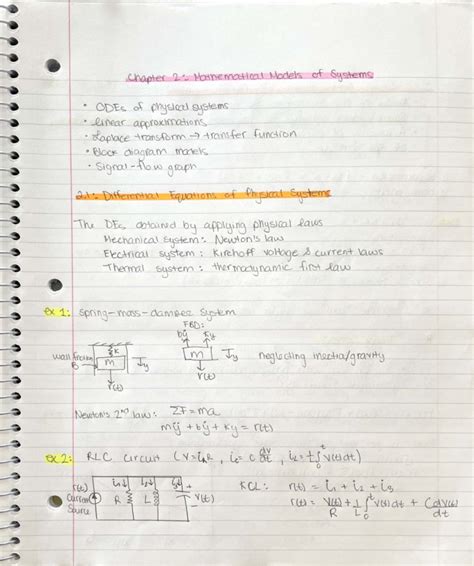 Chapter 2: Mathematical Models of Systems
• ODEs of physical systems
• linear approximations
• Laplace transform → transfer function
• Block diagram models
• Signal-flow graph
2.1: Differential Equations of Physical Systems
The DEs obtained by applying physical laws
Mechanical System: Newton's law
Electrical system: Kirchoff voltage & current laws
Thermal system: thermodynamic first law
ex 1: Spring-mass-damper System
FBD:
bẏ ky
wall friction B → k m ↓y r(t)
m ↓y r(t) neglecting inertia/gravity
Newton's 2nd law: ΣF = ma
mÿ + bẏ + ky = r(t)
ex 2: RLC Circuit (V = iR R, ic = C dv/dt, iL = 1/L ∫₀ᵗ v(t)dt)
r(t) Current Source i₁↓ R i₂↓ L i₃↓ C + − v(t)
KCL: r(t) = i₁ + i₂ + i₃
r(t) = v(t)/R + 1/L ∫₀ᵗ v(t)dt + C dv(t)/dt